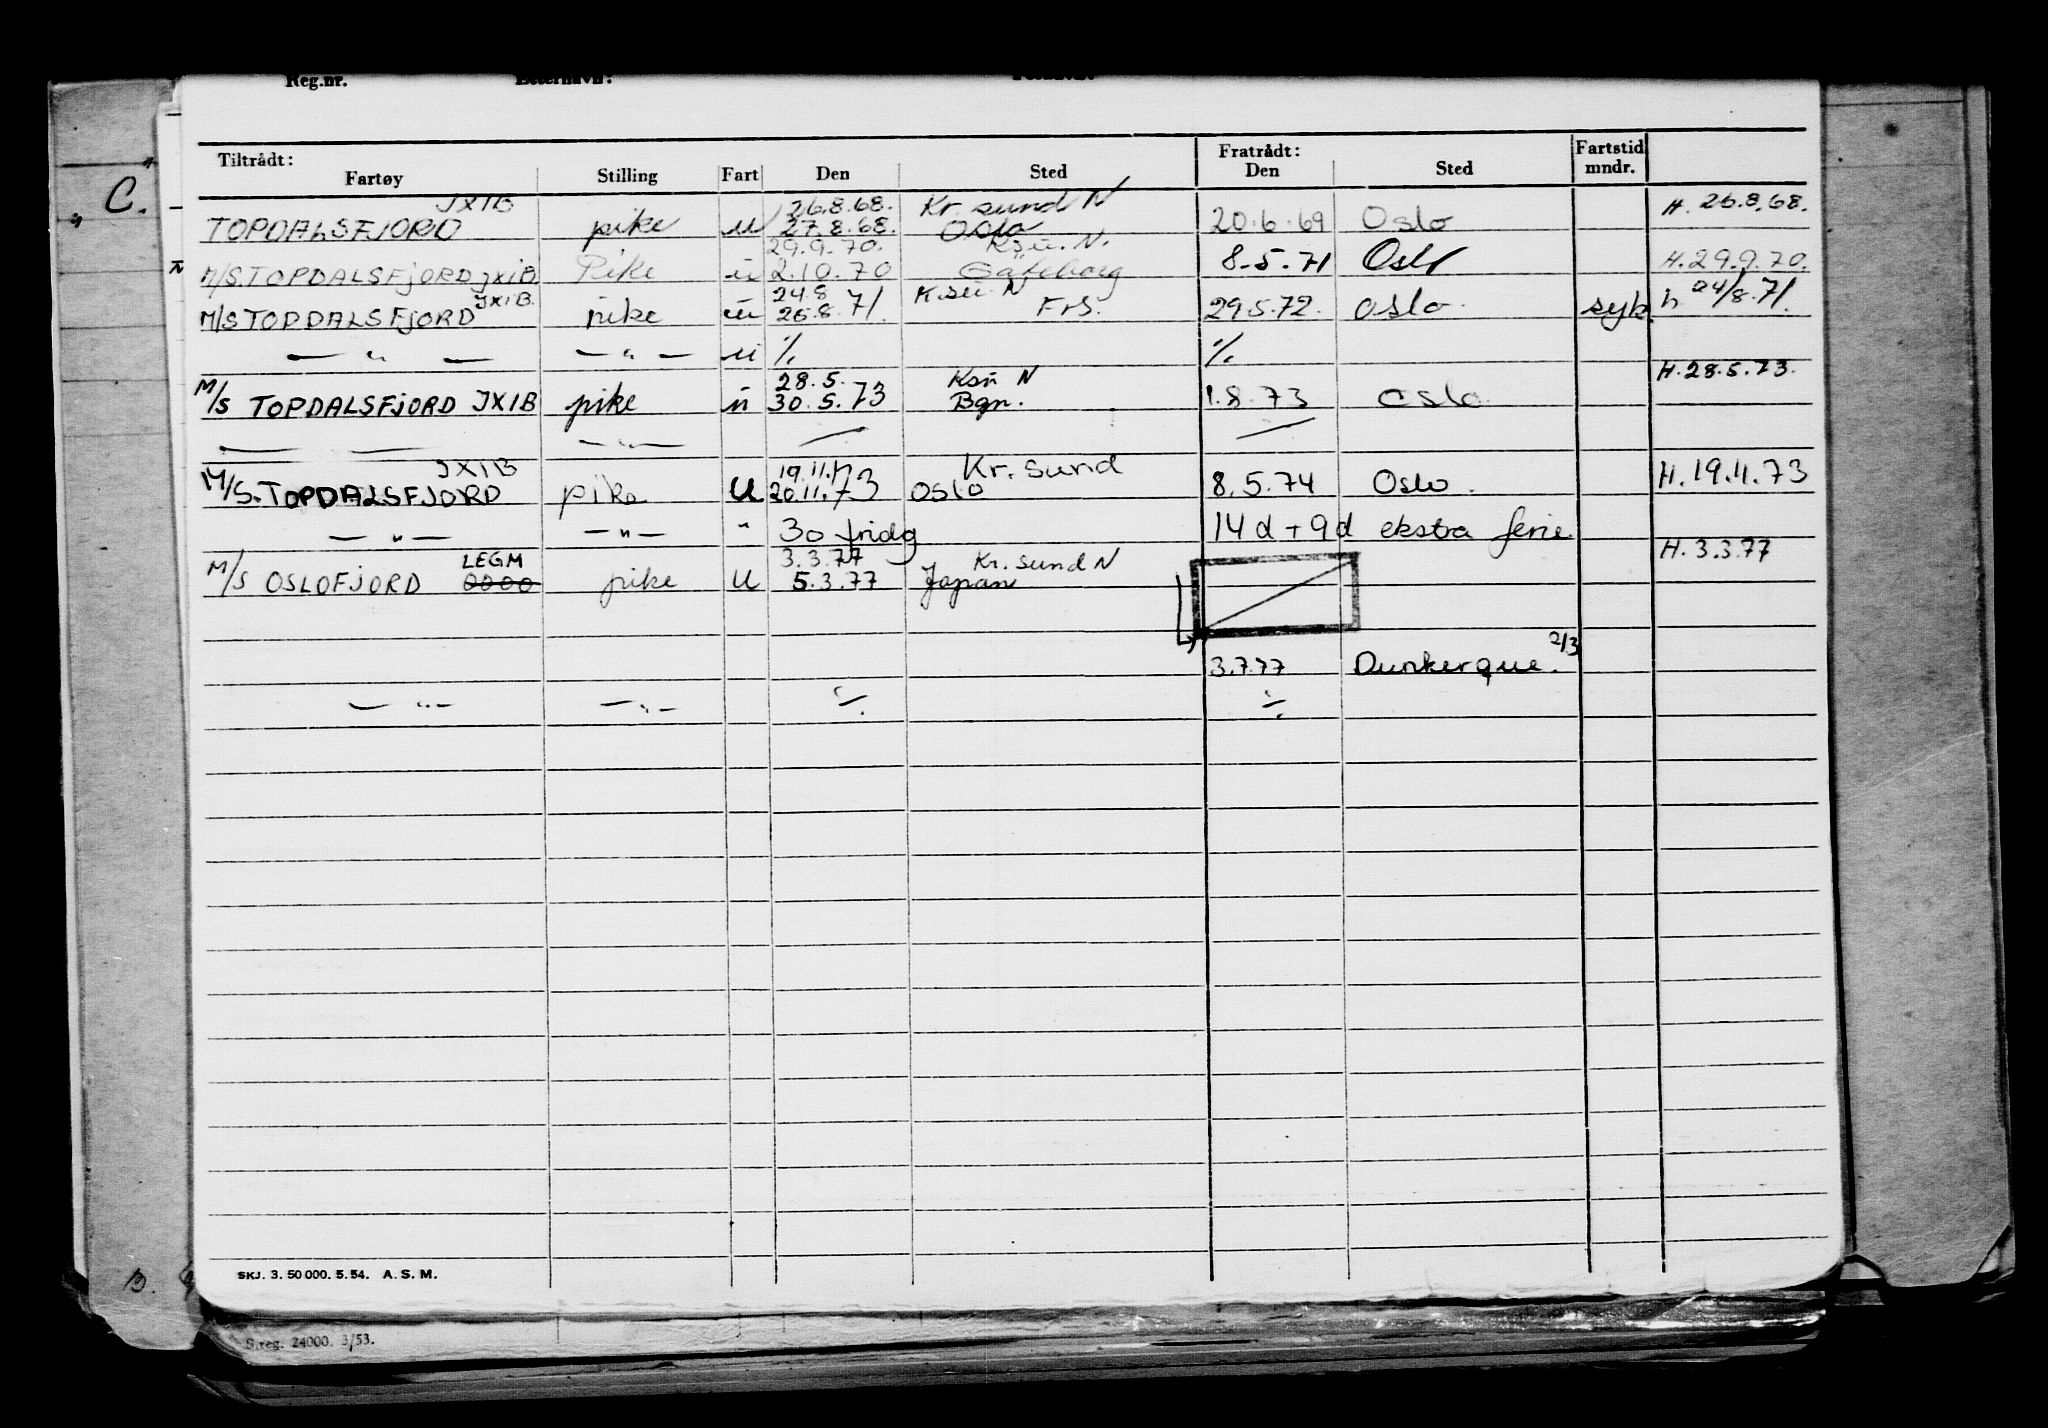 Reg.nr. Etternavn: Fornavn:
Tiltrådt: Fratrådt: Fartstid
Fartøy Stilling Fart Den Sted Den Sted mndr.
C.
JXIB 26.8.68. Kr. sund N H. 26.8.68.
TOPDALSFJORD pike u 27.8.68. Oslo 20.6.69 Oslo
29.9.70. Ksu. N.
M/S TOPDALSFJORD JXIB. Pike u 2.10.70 Gøteborg 8.5.71 Oslo H.29.9.70.
JXIB 24.8 K.su. N
M/S TOPDALSFJORD pike u 26.8.71. Frs. 29.5.72. Oslo. syk. h. 24/8.71.
— " — — " — u ⁒ ⁒
28.5. Ksu N H.28.5.73.
M/S TOPDALSFJORD JXIB pike u 30.5.73 Bgn. 1.8.73 Oslo
— — — " —
JXIB 19.11.73 Kr. Sund
M/S. TOPDALSFJORD pike U 20.11.73 Oslo 8.5.74 Oslo. H.19.11.73
— " — — " — " 30 fridg 14 d + 9 d ekstra ferie
LEGM 3.3.77 Kr. Sund N H. 3.3.77
M/S OSLOFJORD pike U 5.3.77 Japan
3.7.77 Dunkerque. 2/3
— " — — " — ⁒ ⁒
SKJ. 3. 50 000. 5. 54. A. S. M.
B.
S.reg. 24000. 3/53.